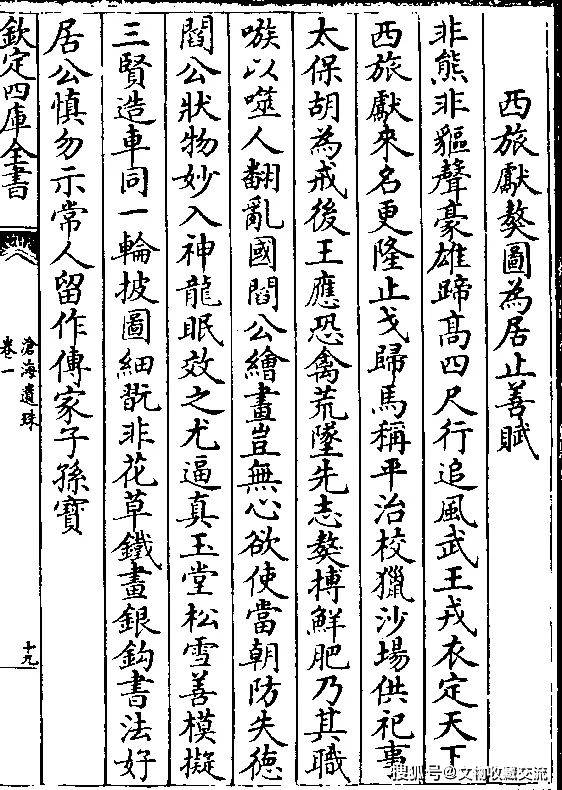 西旅獻獒圖為居止善賦
非熊非貙聲豪雄蹄高四尺行追風武王戎衣定天下
西旅獻來名更隆止戈歸馬稱平治校獵沙場供祀事
太保胡為戒後王應恐禽荒墜先志獒搏鮮肥乃其職
嗾以噬人翻亂國閻公繪畫豈無心欲使當朝防失徳
閻公狀物妙入神龍眠效之尤逼真玉堂松雪善模擬
三賢造車同一輪披圖細翫非花草鐵畫銀鈎書法好
居公慎勿示常人留作傳家子孫寶
欽定四庫全書
滄海遺珠
卷一
十九
搜狐号@文物收藏交流